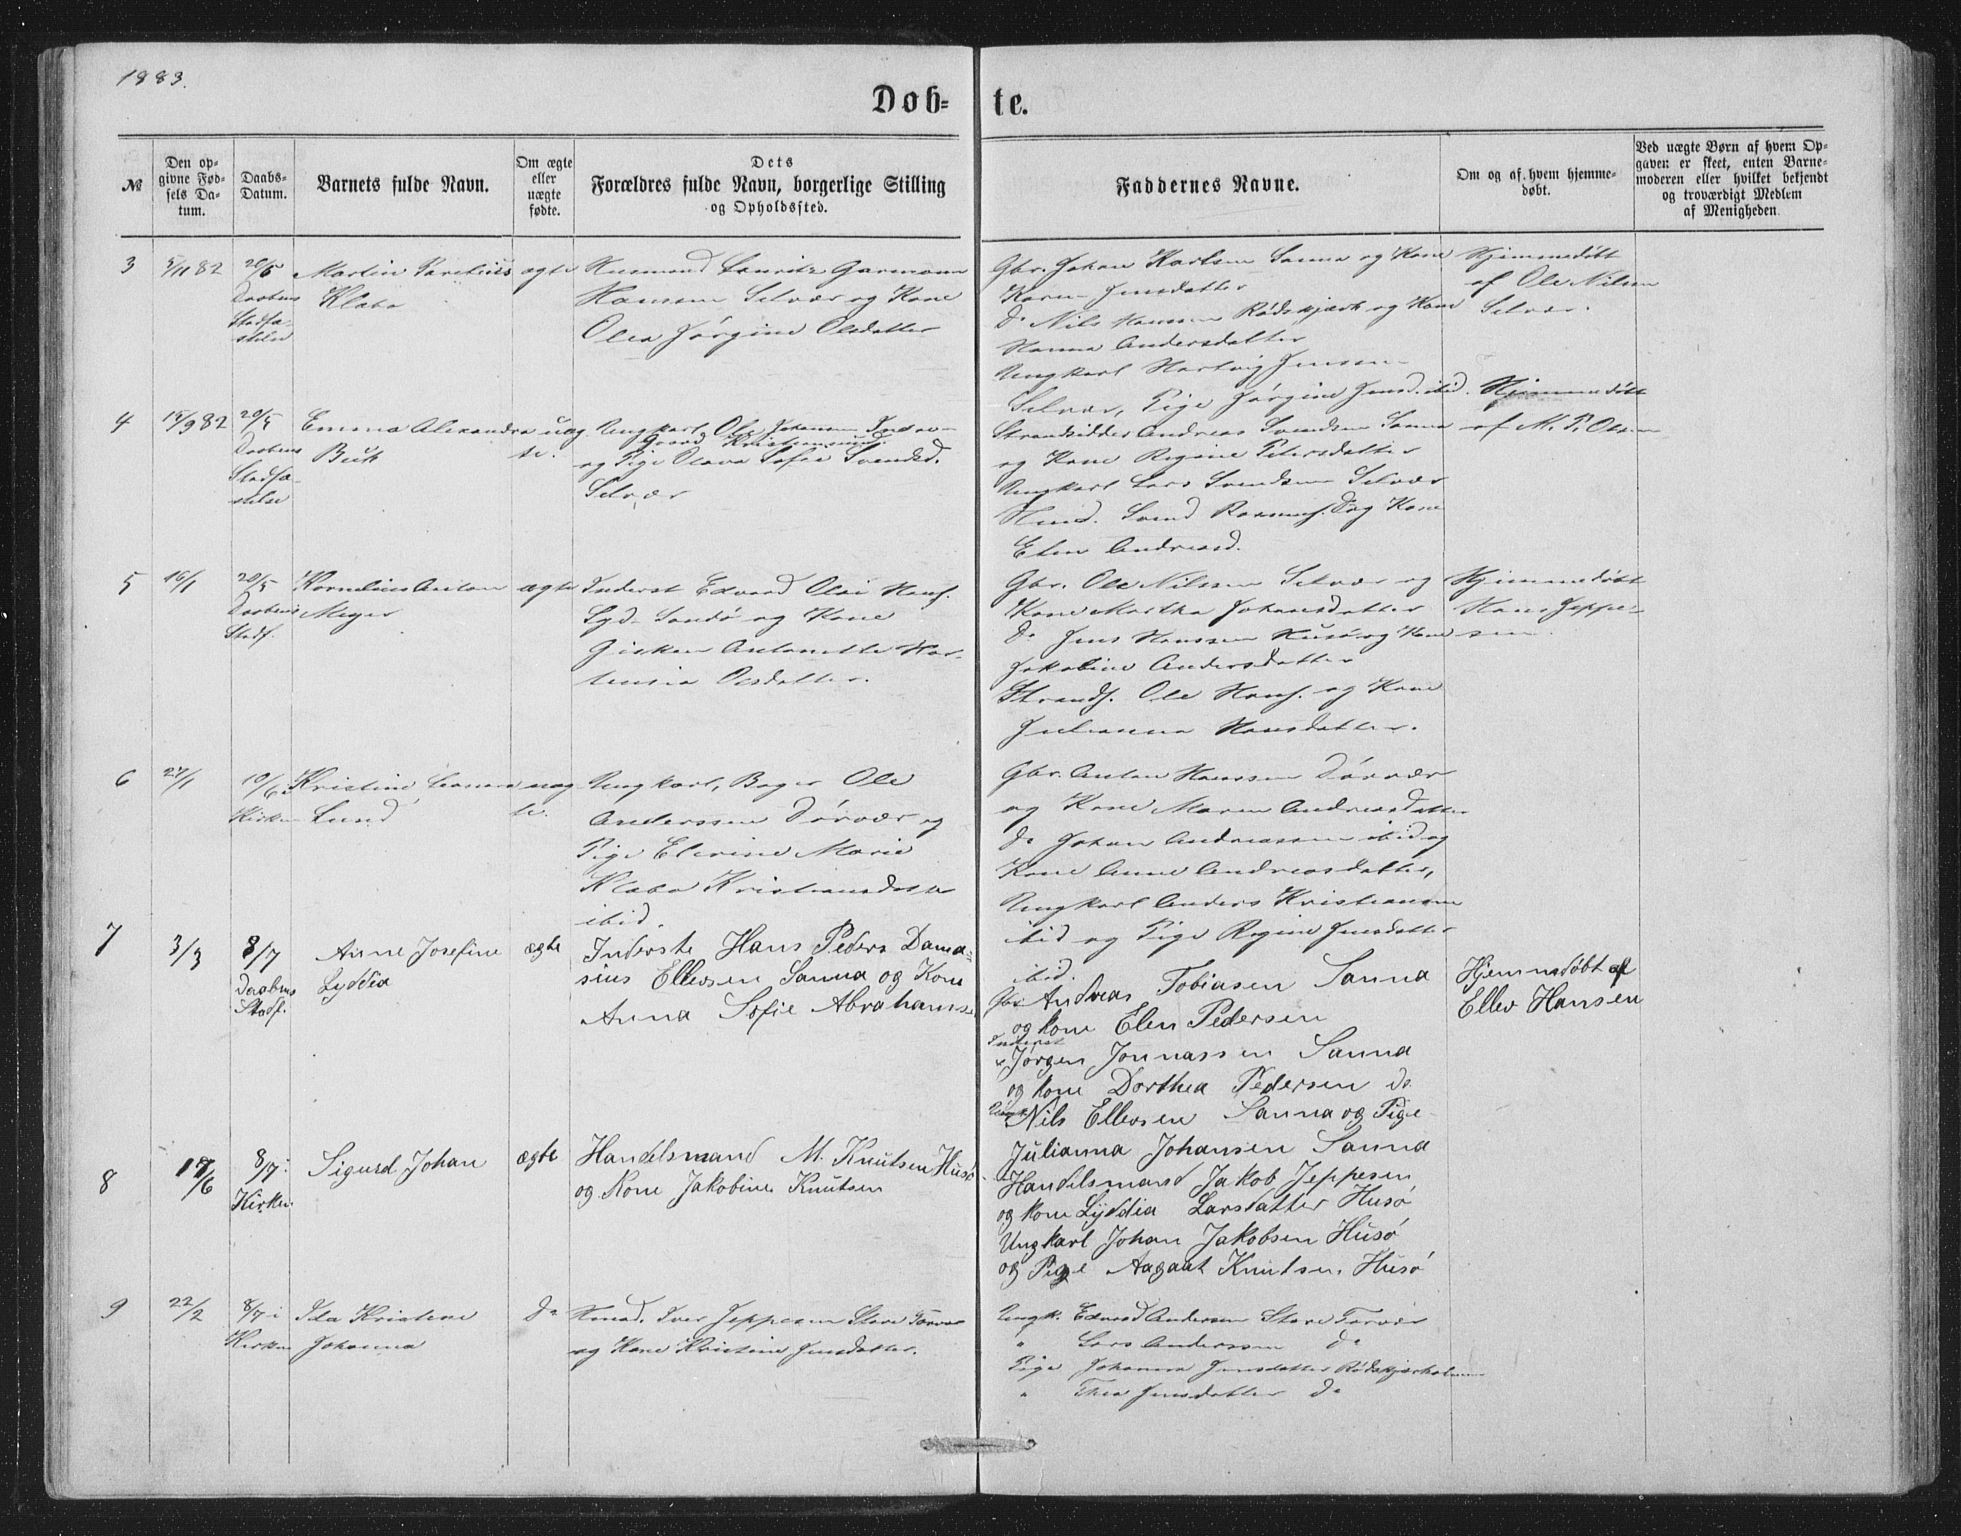 1883.
Døb- te.
№
Den op-
givne Fød-
sels Da-
tum.
Daabs-
Datum.
Barnets fulde Navn.
Om ægte
eller
uægte
fødte.
Dets
Forældres fulde Navn, borgerlige Stilling
og Opholdssted.
Faddernes Navne.
Om og af hvem hjemme-
døbt.
Ved uægte Børn af hvem Op-
gaven er skeet, enten Barne-
moderen eller hvilket bekjendt
og troværdigt Medlem
af Menigheden.
3
5/11 82
20/5
Daabens
Stadfæ-
stelse
Martin Parelius
Klabo
ægte
Husmand Lauritz Garmann
Hansen Selvær og Kone
Olea Jørgine Olsdatter
Gbr. Johan Karlsen Sanna og Kone
Karen Jensdatter
Do Nils Hanssen Rødskjærh og Kone
Hanna Andersdatter
Ungkarl Hartvig Jensen
Selvær, Pige Jørgine Jensd. ibid.
Hjemmedøbt
af Ole Nilsen
Selvær.
4
14/9 82
20/5
Daabens
Stadfæ-
stelse
Emma Alexandra
uæg
te.
Ungkarl Ole Johansen
Kristiansund
og Pige Olava Sofie Svendsd.
Selvær
Strandsidder Andreas Svendsen Sanna
og Kone Regine Petersdatter
Ungkarl Lars Svendsen Selvær
Husd. Svend Rasmuss. Do og Kone
Elen Andreasd.
Hjemmedøbt
af M. P. Olsen
5
16/1
20/5
Daabens
Stadf.
Kornelius Anton
Meyer
ægte
Inderst Edvard Olai Hans.
Syd-Sandø og Kone
Gisken Antonette Hor-
tensia Olsdatter.
Gbr. Ole Nilssen Selvær og
Kone Martha Johansdatter
Do Jens Hanssen Husø og Kone
Jakobine Andersdatter
Strands. Ole Hans. og Kone
Julianna Hansdatter.
Hjemmedøbt
Hans Jeppe-
sen.
6
27/1
10/6 i
Kirken
Kristine Leonora
Lund
uæg
te.
Ungkarl, Bager Ole
Anderssen Dørvær og
Pige Elevine Marie
Klabo Kristiansdatter
ibid.
Gbr. Anton Hanssen Dørvær
og Kone Maren Andreasdatter
Do Johan Andreassen ibid og
Kone Anne Andreasdatter,
Ungkarl Anders Kristiansen
ibid og Pige Regine Jensdatter
ibid.
7
3/3
8/7
Daabens
Stadf.
Anne Josefine
Lyddia
ægte
Inderste Hans Peders Dama-
sius Ellevsen Sanna og Kone
Anna Sofie Abrahams
Gbr. Andreas Tobiasen Sanna
og kone Elen Pedersen
Inderst
Jørgen Jonnassen Sanna
og kone Dorthea Pedersen do
Ungk. Nils Ellevsen Sanna og Pige
Julianna Johansen Sanna
Hjemmedøbt af
Ellev Hansen
8
17/6
8/7 i
Kirken
Sigurd Johan
ægte
Handelsmand M. Knutsen Husø
og Kone Jakobine Knutsen
Handelsmand Jakob Jeppesen
og kone Lyddia Larsdatter Husø
Ungkarl Johan Jakobsen Husø
og Pige Aagaat Knutsen Husø
9
22/2
8/7 i
Kirken
Ida Kristine
Johanna
Do
Husd. Iver Jeppesen Store Torvær
og Kone Kristine Jensdatter.
Ungk. Edvard Andersen Store Torvær
" Lars Anderssen Do
Pige Johanna Jensdatter Rødskjærholmen
" Thea Jensdatter Do